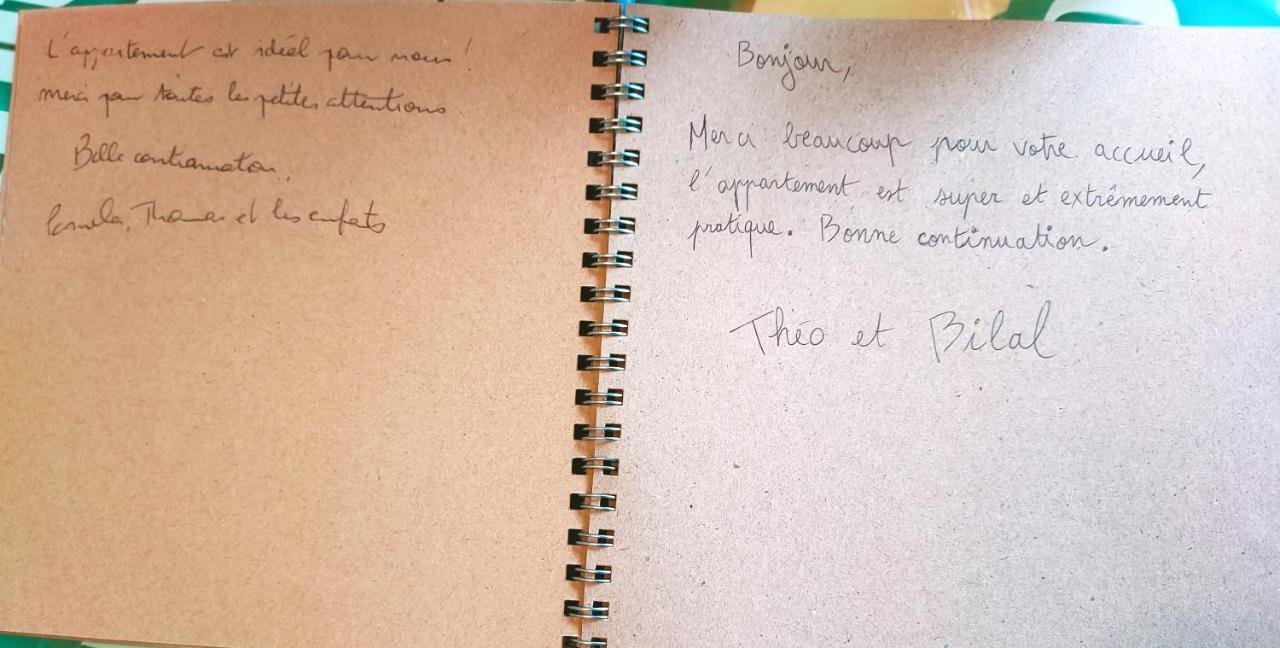 L'appartement est idéal pour nous !
merci pour toutes les petites attentions
Belle continuation.
Thomas et les enfants
Bonjour,
Merci beaucoup pour votre accueil,
l'appartement est super et extrêmement
pratique. Bonne continuation.
Théo et Bilal